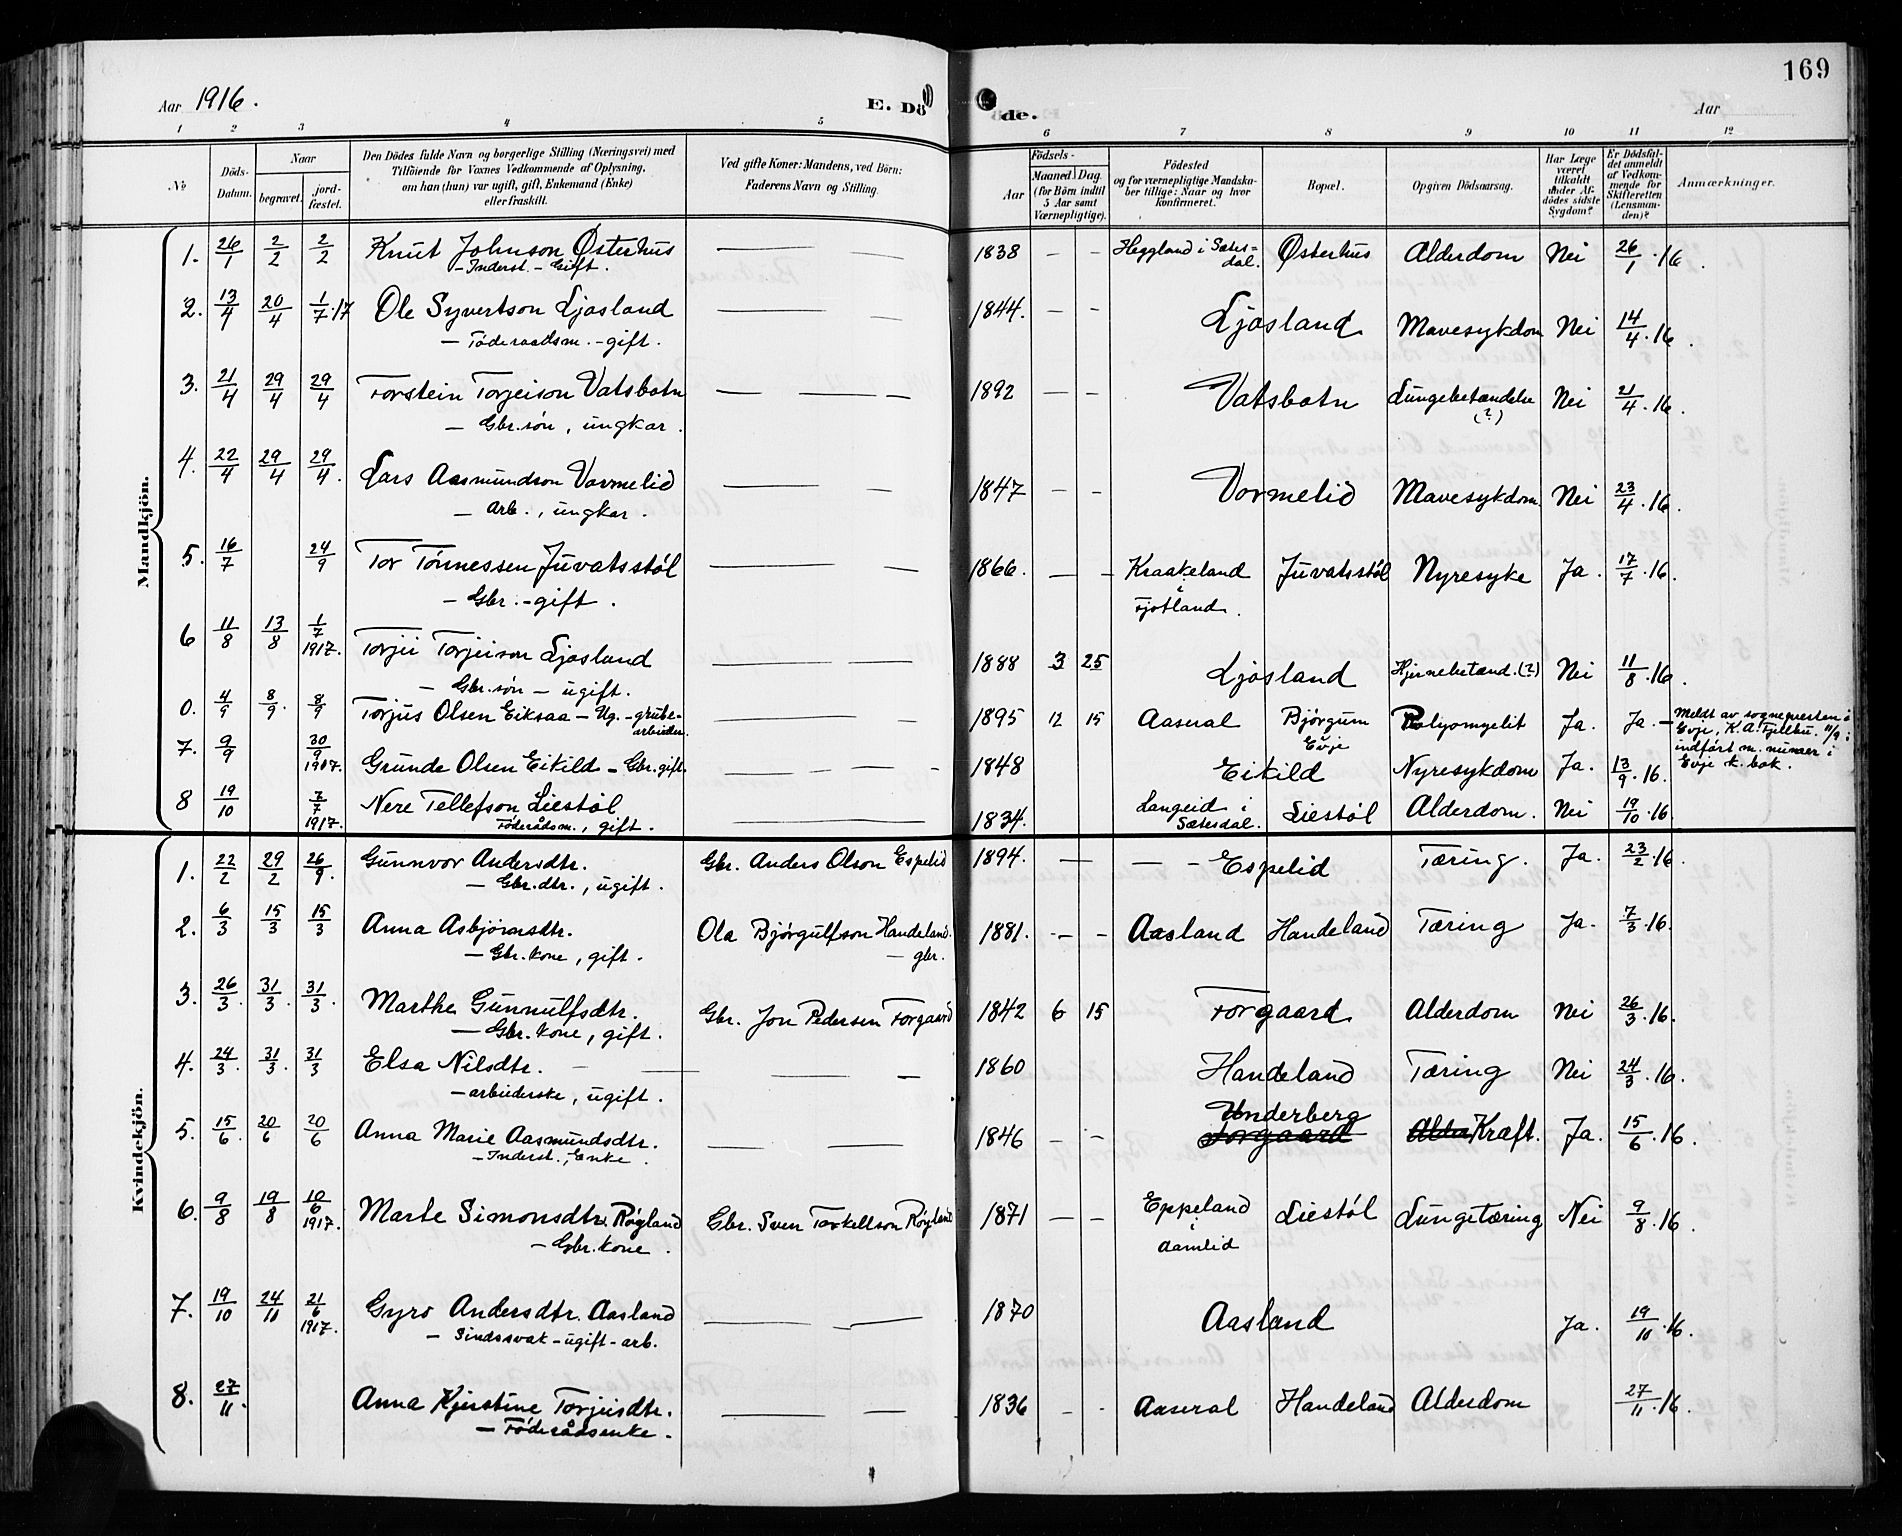 169
Aar 1916. E. Dö de. Aar
1 2 3 4 5 6 7 8 9 10 11 12
№ Döds-Datum. Naar begravet. jord-fæstet. Den Dödes fulde Navn og borgerlige Stilling (Næringsvei) med Tilföiende for Voxnes Vedkommende af Oplysning, om han (hun) var ugift, gift, Enkemand (Enke) eller fraskilt. Ved gifte Koner: Mandens, ved Börn: Faderens Navn og Stilling. Födsels- Aar Maaned Dag. (for Börn indtil 5 Aar samt Værnepligtige). Födested og for værnepligtige Mandska-ber tillige: Naar og hvor konfirmeret. Bopæl. Opgiven Dödsaarsag. Har Læge været tilkaldt under Af-dödes sidste Sygdom? Er Dödsfal-det anmeldt af Vedkom-mende for Skifteretten (Lensman-den)? Anmærkninger.
Mandkjön.
1. 26/1 2/2 2/2 Knut Johnson Østerhus — — 1838 – – Heggland i Sætes- Østerhus Alderdom Nei 26/1·16.
– Inderst. – Gift. dal.
2. 13/4 20/4 1/7·17 Ole Syvertson Ljosland — — 1844. – – Ljosland Mavesykdom Nei 14/4·16.
– Föderaadsm. – gift.
3. 21/4 29/4 29/4 Torstein Torjeison Vatsbotn — — — 1892 – – Vatsbotn Lungebetændelse Nei 21/4·16.
– Gbr.søn, ungkar. (?)
4. 22/4 29/4 29/4. Lars Aasmundson Vormelid — — 1847 – – Vormelid Mavesykdom Nei 23/4·16.
– Arb., ungkar.
5. 16/7 24/9 Tor Tönnessen Juvatsstöl — — 1866. – – Kraakeland Juvatsstöl Nyresyke Ja. 17/7·16.
– Gbr. – gift. i Fjotland.
6 11/8 13/8 1/7 1917. Torjei Torjeison Ljosland — — — 1888 3 25 Ljosland Hjernebetænd. (?) Nei 11/8·16.
– Gbr.søn – ugift.
0. 4/9 8/9. 8/9 Torjus Olsen Eiksaa – Ug. – grube- — — — 1895 12 15 Aaseral Bjórgum Polyomyelit Ja. Ja. – Meldt av sognepresten i
arbeider. Evje Evje, K. A. Fjellbu. 11/9 i
7. 9/9 30/9 1917. Grunde Olsen Eikild – Gbr. gift. — — — 1848 Eikild Nyresykdom Ja. 13/9·16. indfórt m. numer i
Evje k. bok.
8 19/10 7/7 1917. Nere Tellefson Liestöl — 1834. Langeid i Liestól Alderdom. Nei 19/10·16
Föderådsm., gift. Sætesdal.
Kvindekjön.
1. 22/2 29/2 26/9 Gunnvor Andersdtr. Gbr. Anders Olson Espelid 1894. — — – Espelid Tæring. Ja. 23/2·16.
– Gbr.dtr., ugift.
2. 6/3 15/3 15/3 Anna Asbjörnsdtr. Ola Bjórgulfson Handeland. 1881. – – Aasland Handeland Tæring Ja. 7/3·16.
– Gbr. kone, gift. – gbr.
3. 26/3. 31/3. 31/3. Marthe Gunnulfsdtr. Gbr. Jon Pedersen Torgaard 1842 6 15 Torgaard Alderdom Nei 26/3·16.
– Gbr. kone, gift.
4. 24/3. 31/3. 31/3 Elsa Nilsdtr. – — — – 1860 Handeland Tæring Nei 24/3·16.
– arbeiderske, ugift.
Underberg
5. 15/6. 20/6 20/6 Anna Marie Aasmundsdtr. — — 1846 – – Torgaard Alder Kræft. Ja. 15/6·16.
– Inderst., Enke.
6. 9/8 19/8 10/6 1917. Marte Simonsdtr. Róyland Gbr. Sven Torkellson Róyland 1871 — – Eppeland Liestól Lungetæring Nei 9/8·16.
– Gbr. kone. i Aamlid
7. 19/10 24/11 21/6 1917. Gyro Andersdtr. Aasland — — 1870 Aasland Ja. 19/11·16.
– Sindssvak – ugift – arb.
8. 27/11. Anna Kjerstine Torjeisdtr. — — – 1836 – – Aaseral Handeland Alderdom 27/11·16.
– Föderådsenke.